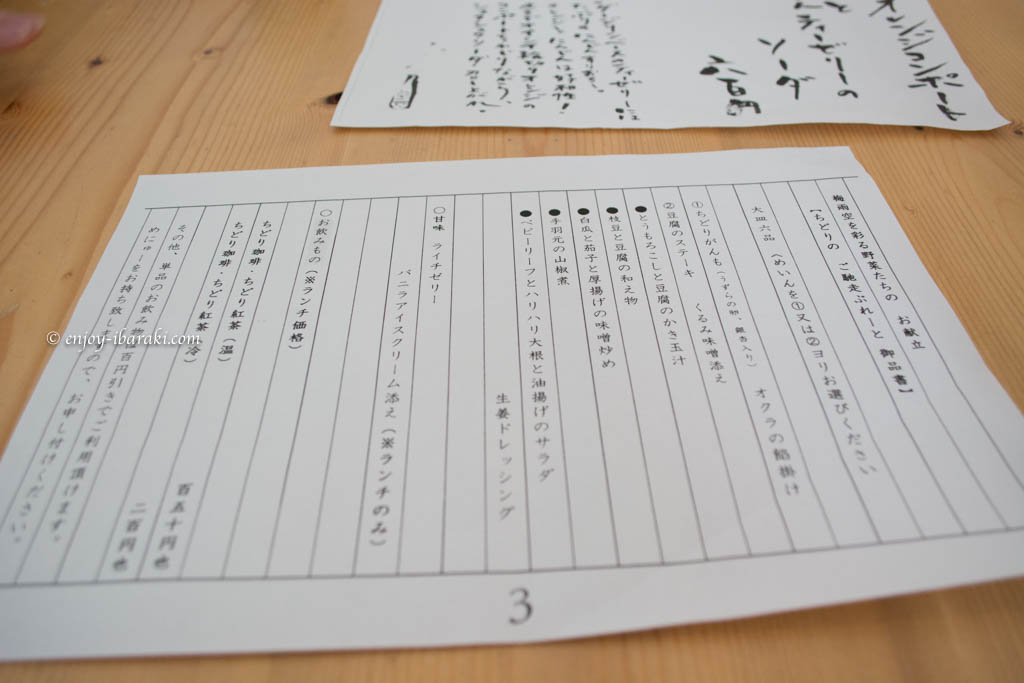 オレンジコンポート
と
ソーダ
六百円
梅雨空を彩る野菜たちの お献立
【ちどりの ご馳走ぷれーと 御品書】
大皿六品 (めいんを①又は②ヨリお選びください
①ちどりがんも(うずらの卵、銀杏入り) オクラの餡掛け
②豆腐のステーキ くるみ味噌添え
●とうもろこしと豆腐のかき玉汁
●枝豆と豆腐の和え物
●白瓜と茄子と厚揚げの味噌炒め
●手羽元の山椒煮
●ベビーリーフとハリハリ大根と油揚げのサラダ
生姜ドレッシング
〇甘味 ライチゼリー
バニラアイスクリーム添え(※ランチのみ)
〇お飲みもの(※ランチ価格)
ちどり珈琲・ちどり紅茶(温) 百五十円也
ちどり珈琲・ちどり紅茶(冷) 二百円也
その他、単品のお飲み物百円引きでご利用頂けます。
めにゅーをお持ち致しますので、お申し付けください。
3
© enjoy-ibaraki.com